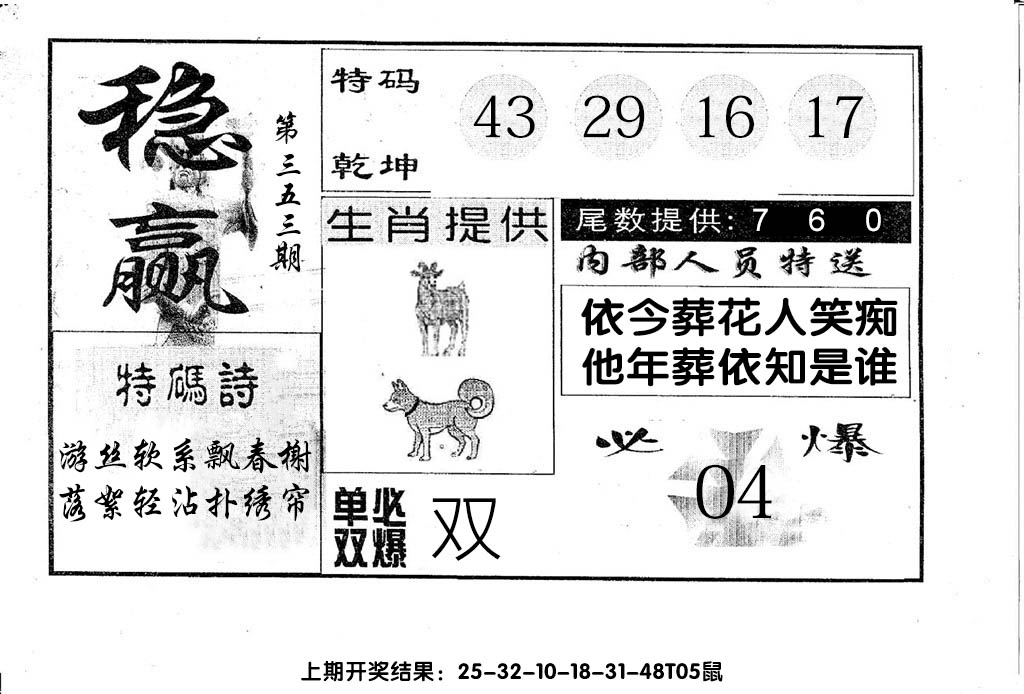 稳赢
第三五三期
特码
乾坤
43 29 16 17
生肖提供
尾数提供: 7 6 0
内部人员特送
依今葬花人笑痴
他年葬依知是谁
特碼詩
游丝软系飘春榭
落絮轻沾扑绣帘
单双必爆
双
必爆
04
上期开奖结果：25-32-10-18-31-48T05鼠